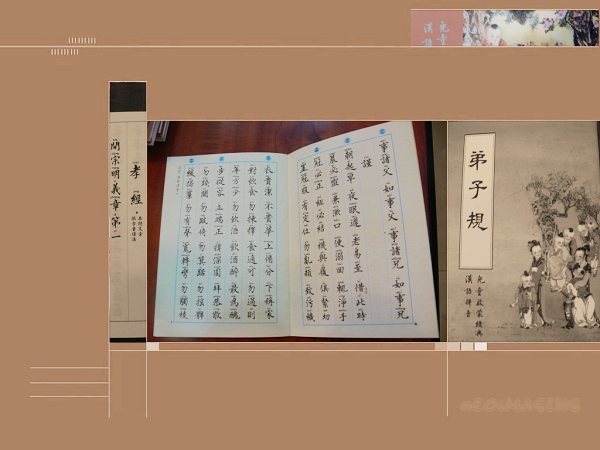 兒童
漢語
孝經
開宗明義章第一
事諸父 如事父 事諸兄 如事兄
謹
朝起早 夜眠遲 老易至 惜此時
晨必盥 兼漱口 便溺回 輒淨手
冠必正 紐必結 襪與履 俱緊切
置冠服 有定位 勿亂頓 致污穢
衣貴潔 不貴華 上循分 下稱家
對飲食 勿揀擇 食適可 勿過則
年方少 勿飲酒 飲酒醉 最為醜
步從容 立端正 揖深圓 拜恭敬
勿踐閾 勿跛倚 勿箕踞 勿搖髀
緩揭簾 勿有聲 寬轉彎 勿觸棱
弟子規
兒童啟蒙經典
漢語拼音
NEOIMAGING